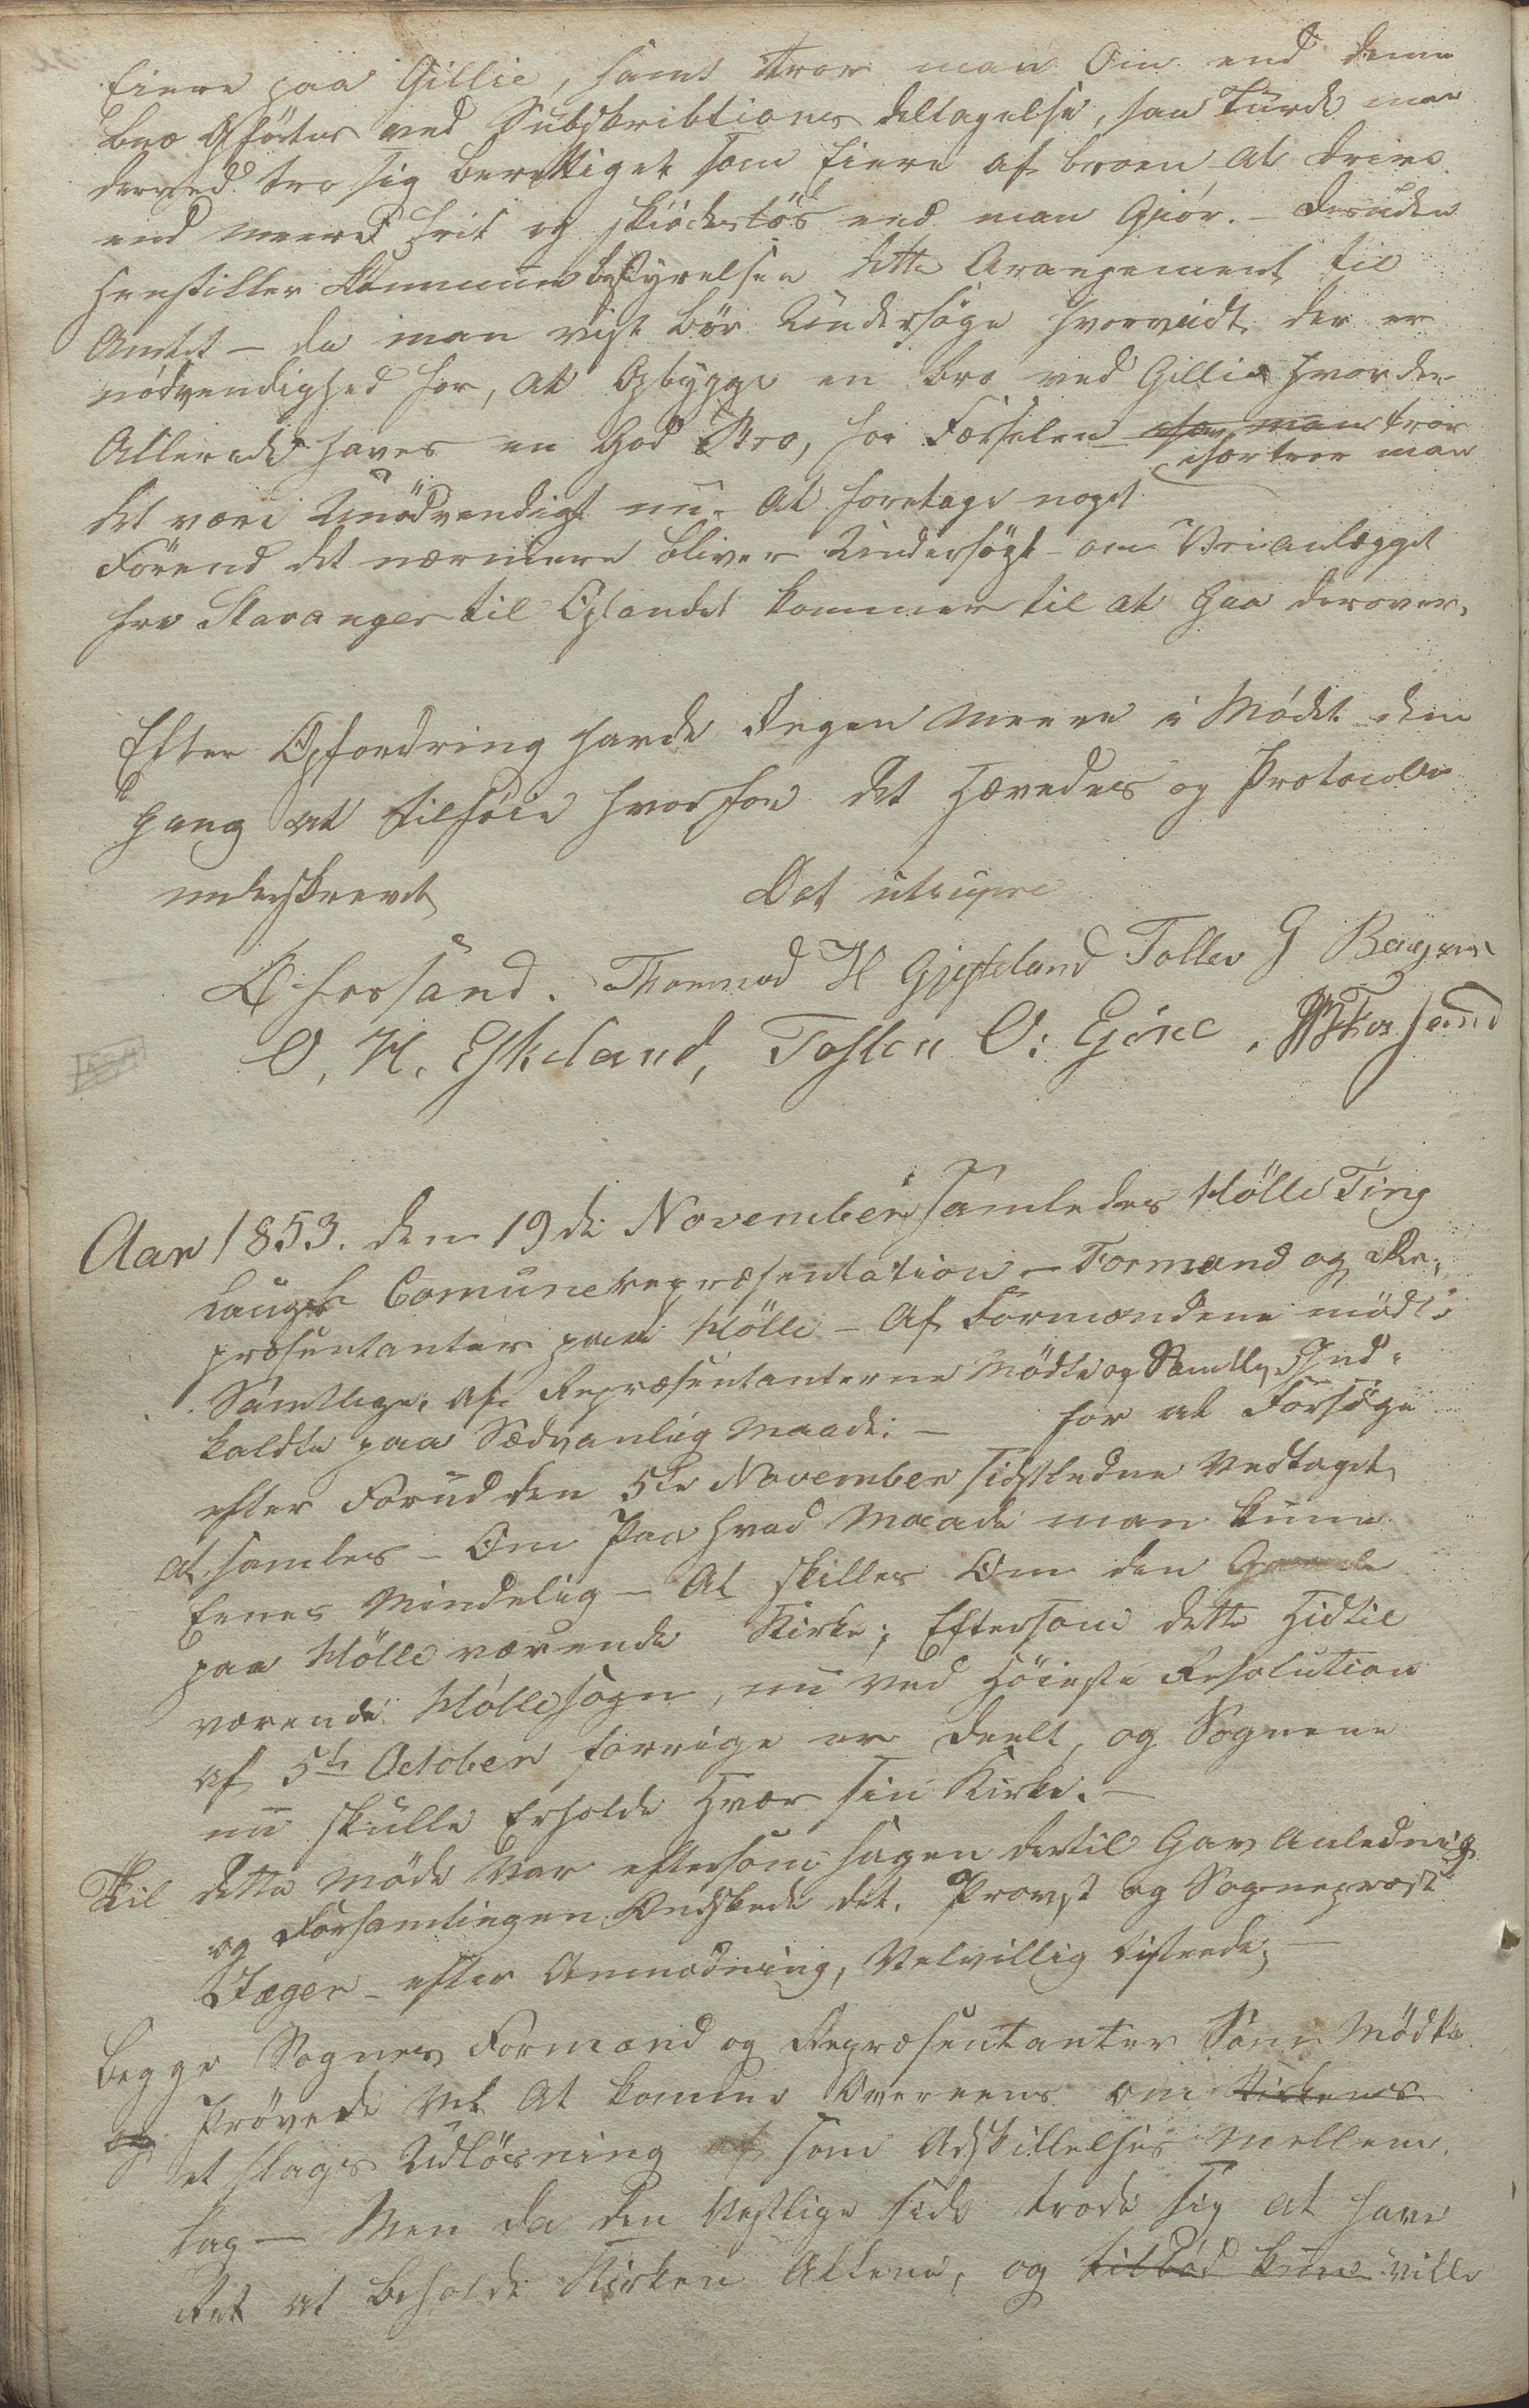 Eiere paa Gillie, samt tror man Om end denne
bro Opførtes ved Subskribtions deltagelse, saa turde man
derved tro sig berettiget som Eiere af broen at drive
end meere frit og skjødesløs end man Gjør. – desuden
henstiller Kommunebestyrelsen dette Arangement til
Amtet – da man vist bør Undersøge hvorvidt der er
nødvendighed for, at Opbygge en bro ved Gillie hvor der
Allerede haves en God Bro, for Færselen – især man tror
især troer man
det være Unødvendigt nu. At foretage noget
Førend det nærmere bliver Undersøgt – om Veianlægget
fra Stavanger til Oplandet kommer til at Gaa derover.
Efter Opfordring havde Ingen meere i Mødet den
Gang at tilføie hvorfor det Hævedes og Protocollen
underskrevet
Dat utsupra
O Forsand. Thormod H Gjesteland Tollev G Bergesen
O. H. Eskeland, Tosten O: Gjøse. Forsand
Aar 1853. den 19de November samledes Hølle Ting
laugs Comunerepræsentation – Formænd og Re-
præsentanter paa Hølle – Af Formændene mødte
Samtlige. Af Repræsentanterne Mødte og Samtlig Ind-
kaldte paa Sædvanlig Maade: – for at Forsøge
efter Forud den 5te November sidstledne Vedtaget
at samles – Om Paa hvad Maade man kunne
Eenes Mindelig – At skilles Om den Gamle
paa Hølle værende Kirke; Eftersom dette Hidtil
værende Hølle sogn, nu ved Høieste Resolution
af 5te October forrige er deelt, og Sognene
nu skulle Erholde Hver sin Kirke. –
Til dette Møde Var eftersom sagen dertil Gav Anledning
og Forsamlingen Ønskede det. Provst og Sognepræst
Jæger – efter Anmodning, Velvillig tilstede; –
Begge Sognes Formænd og Repræsentanter Som Mødte
og Prøvede vel At komme Overeens om Kirkens
et slags Udløsning af som Adskillelses Mellem
lag – Men da den Vestlige side troede sig at have
Ret at beholde Kirken Allene, og tilbød kun ville